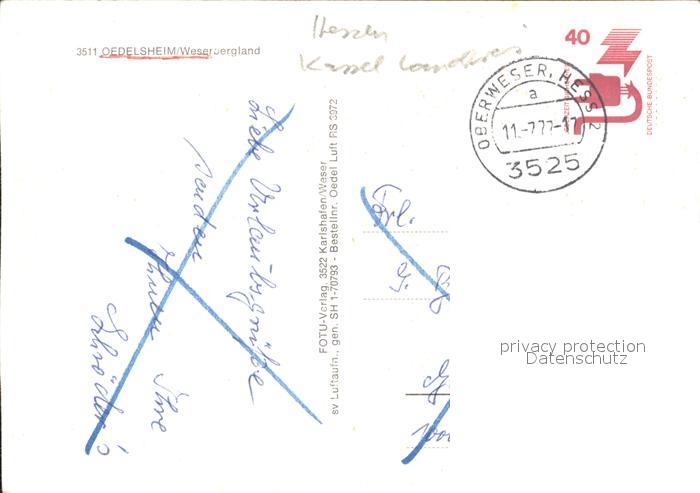 3511 OEDELSHEIM/Weserbergland
Hessen
Kassel Landkreis
40
DEUTSCHE BUNDESPOST
OBERWESER, HESS 2
a
11.-7.77-17
3525
Liebe Urlaubsgrüße
senden
Ihnen Ihre
Schröder's
FOTU-Verlag, 3522 Karlshafen/Weser
sv Luftaufn., gen. SH 1-70793 - Bestellnr. Oedel Luft RS 3972
Frl.
privacy protection
Datenschutz